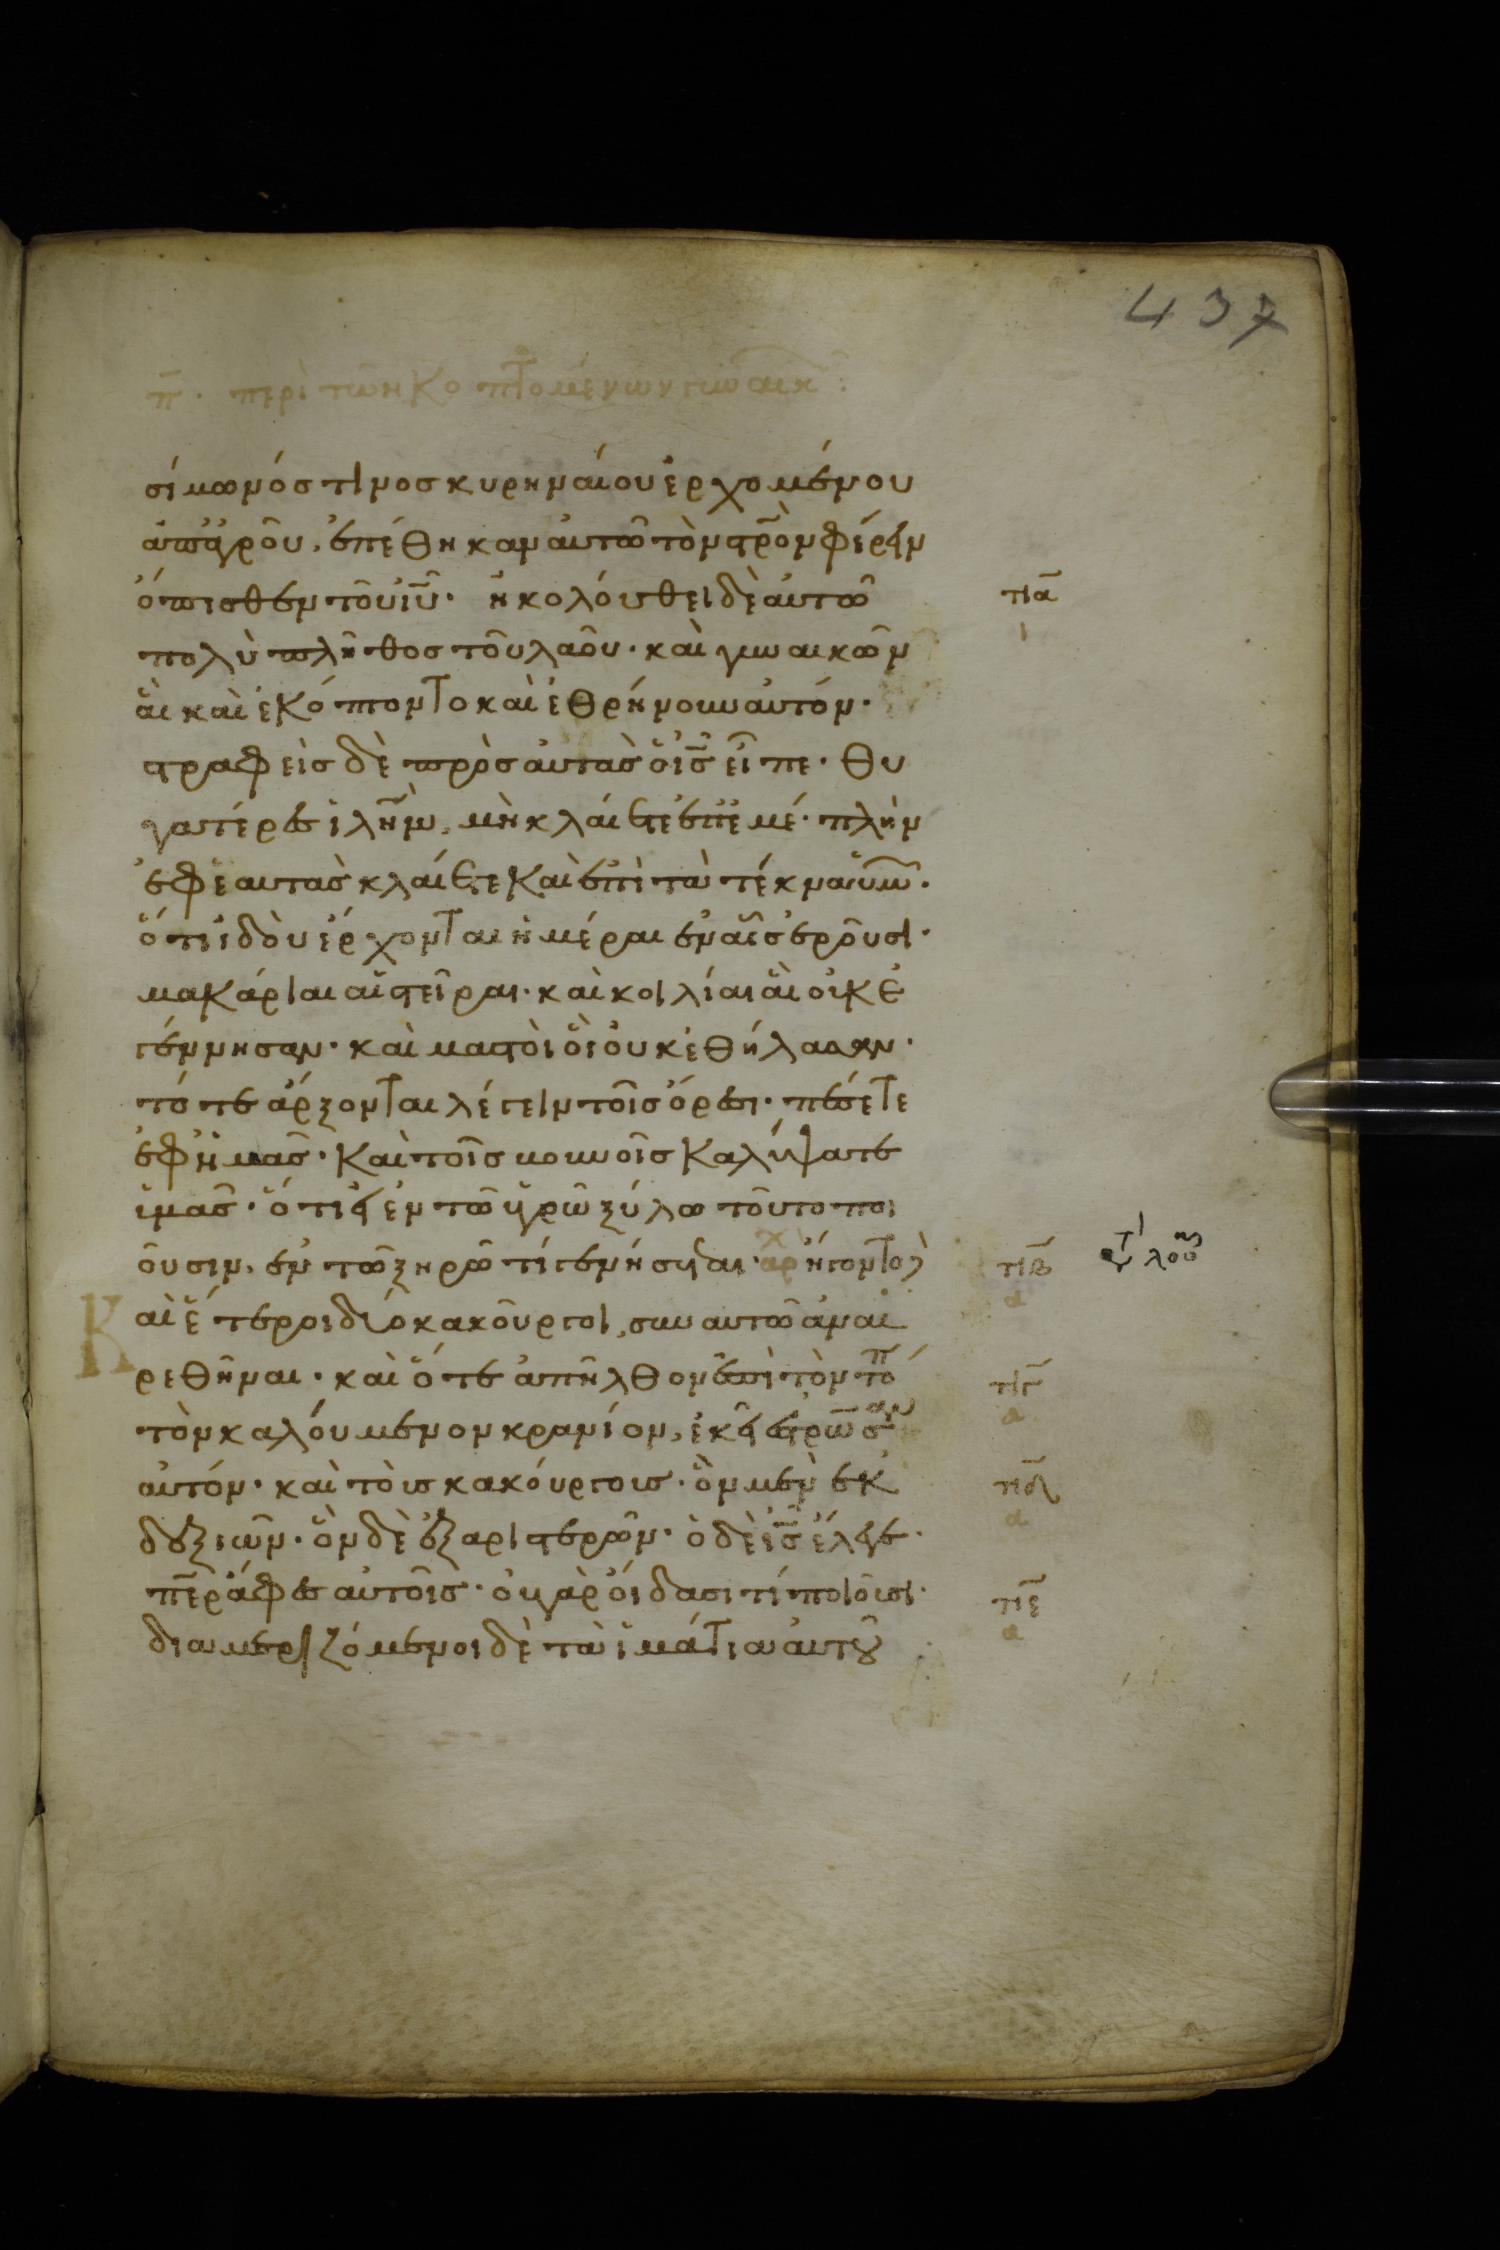 437
π̅· περὶ τῶν κοπτομένων γυναικ̅:
σίμωνόστινοσ κυρηναίου ἐρχομένου
ἀπ' ἀγροῦ, ἐπέθηκαν αὐτῶ τὸν στρ̅ὸν φέρειν
ὄπισθεν τοῦ ἰυ̅· ἠκολούθει δὲ αὐτῶ
τια̅
ι
πολὺ πλῆθοσ τοῦ λαοῦ· καὶ γυναικῶν
ἃι καὶ ἐκόπτοντο καὶ ἐθρήνουν αὐτόν·
στραφεὶσ δὲ πρὸσ αὐτασ ὁ ἰσ̅ εἶπε· θυ
γατέρεσ ἰλη̅μ, μὴ κλαίετε ἐπ' ἐμέ· πλὴν
ἐφ' ἑαυτασ κλαίετε καὶ ἐπὶ τὰ τέκνα ὑμῶ̅·
ὅτι ἰδοὺ ἔρχονται ἡμέραι ἐν αἷσ ἐροῦσι·
μακάριαι αἱ στεῖραι· καὶ κοιλίαι ἃι οὐκ ἐ
γέννησαν· καὶ μαστοὶ ὃι οὐκ ἐθήλασαν·
τότε ἄρξονται λέγειν τοῖσ ὄρεσι· πέσετε
ἐφ' ἡμασ· καὶ τοῖσ βουνοῖσ καλύψατε
ἡμασ· ὅτι εἰ ἐν τῶ ὑγρῶ ξύλω τοῦτο ποι
οῦσιν, ἐν τῶ ξηρῶ τί γένησται· αρχ ἤγοντο δὲ
τιβ̅
α
κ
αὶ ἕτεροι δύο κακοῦργοι, συν αυτῶ ἀναι
ρεθῆναι· καὶ ὅτε ἀπῆλθον ἐπὶ τὸν τόπ
τιγ̅
α
τὸν καλούμενον κρανίον, ἐκεῖ ἐστρώ̅σαν
αὐτόν· καὶ τοὺσ κακούργουσ· ὃν μὲν ἐκ
τιδ̅
α
δεξιῶν· ὃν δὲ ἐξ αριστερῶν· ὁ δὲ ἰσ̅ ἔλεγε·
πε̅ρ ἄφεσ αὐτοῖσ· οὐ γὰρ οἴδασι τί ποιοῦσι·
τιε̅
α
διαμεριζόμενοι δὲ τὰ ἱμάτια αὐτοῦ